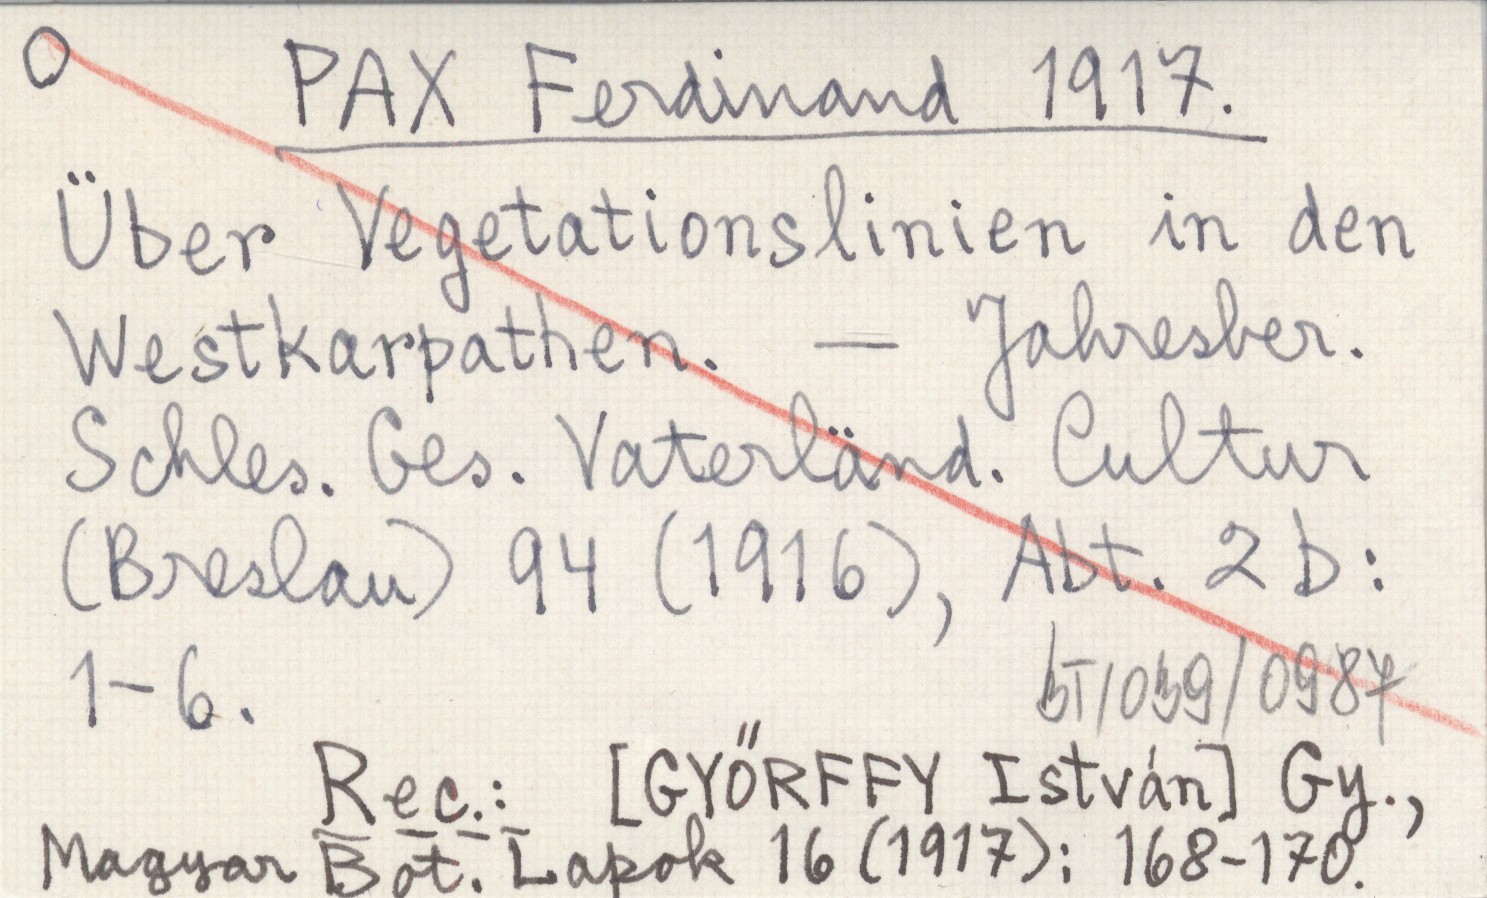 PAX Ferdinand 1917.
Über Vegetationslinien in den
Westkarpathen. — Jahresber.
Schles. Ges. Vaterländ. Cultur
(Breslau) 94 (1916), Abt. 2b:
1-6.
bT/039/0987
Rec.: [GYŐRFFY István] Gy.,
Magyar Bot. Lapok 16 (1917): 168-170.